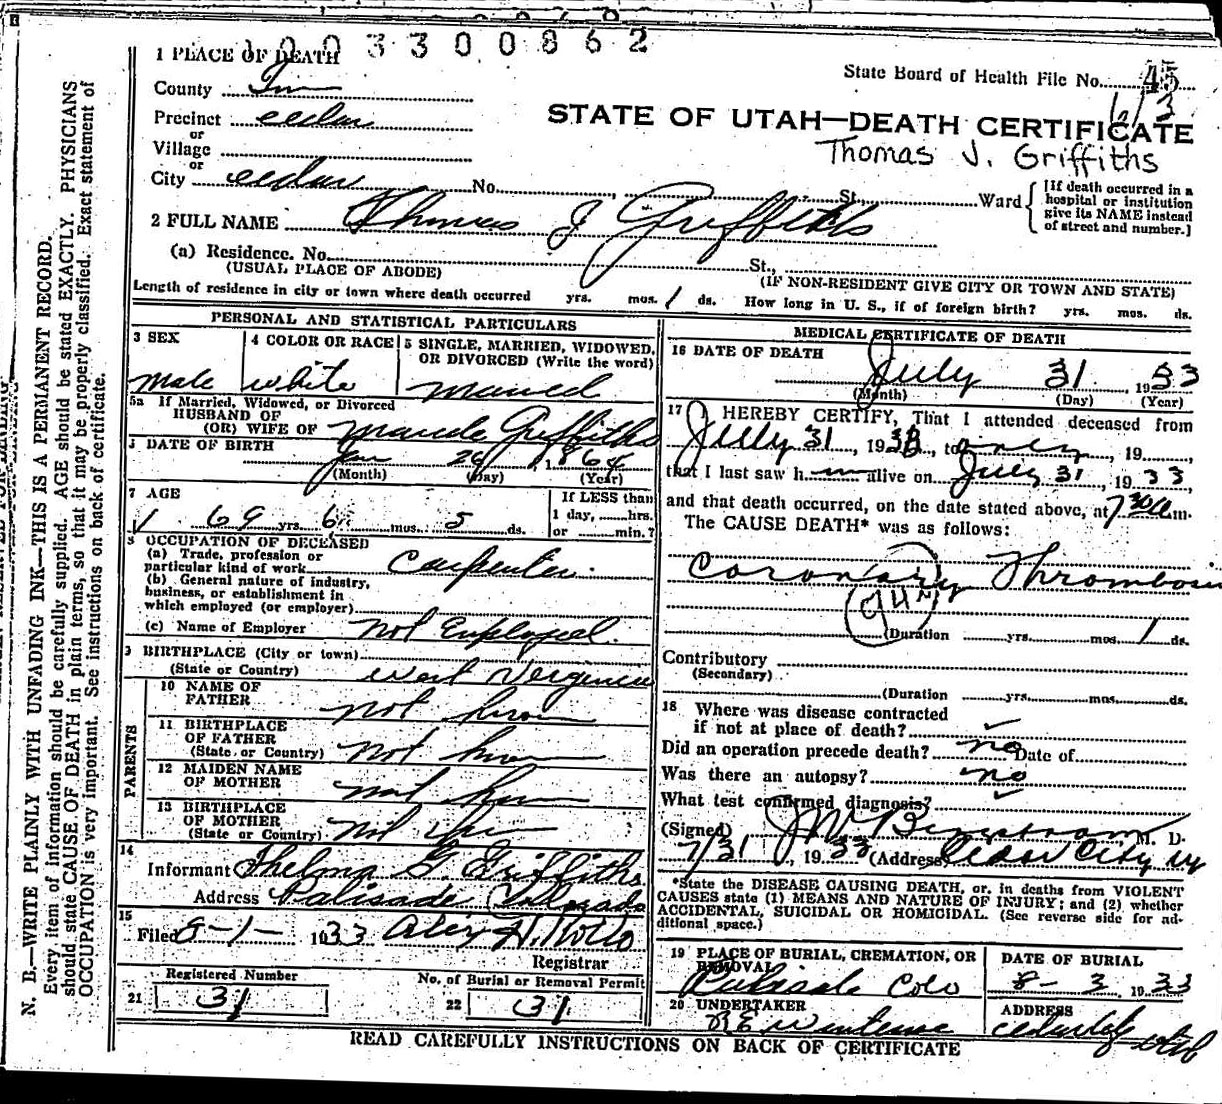 1003300862
1 PLACE OF DEATH
State Board of Health File No. 45
County
6/3
Precinct cedar
STATE OF UTAH—DEATH CERTIFICATE
or
Village
Thomas J. Griffiths
or
City cedar No. St. Ward
[If death occurred in a
hospital or institution
give its NAME instead
of street and number.]
2 FULL NAME Thomas J Griffiths
(a) Residence. No. St.,
(USUAL PLACE OF ABODE) (IF NON-RESIDENT GIVE CITY OR TOWN AND STATE)
Length of residence in city or town where death occurred yrs. mos. 1 ds. How long in U. S., if of foreign birth? yrs. mos. ds.
PERSONAL AND STATISTICAL PARTICULARS
3 SEX
male
4 COLOR OR RACE
white
5 SINGLE, MARRIED, WIDOWED,
OR DIVORCED (Write the word)
married
5a If Married, Widowed, or Divorced
HUSBAND OF
(OR) WIFE OF Maude Griffiths
DATE OF BIRTH
Jan 26, 1864
(Month) (Day) (Year)
7 AGE
69 yrs. 6 mos. 5 ds.
If LESS than
1 day, hrs.
or min.?
8 OCCUPATION OF DECEASED
(a) Trade, profession or
particular kind of work Carpenter.
(b) General nature of industry,
business, or establishment in
which employed (or employer)
(c) Name of Employer Not Employed.
9 BIRTHPLACE (City or town)
(State or Country) West Virginia
PARENTS
10 NAME OF
FATHER not known
11 BIRTHPLACE
OF FATHER
(State or Country) not known
12 MAIDEN NAME
OF MOTHER not known
13 BIRTHPLACE
OF MOTHER
(State or Country)
14
Informant Thelma G. Griffiths
Address Palisade Colorado
15
Filed 8-1- 1933 Alex H. Rollo
Registrar
Registered Number
21 31
No. of Burial or Removal Permit
22 31
MEDICAL CERTIFICATE OF DEATH
16 DATE OF DEATH
July 31, 1933
(Month) (Day) (Year)
17 I HEREBY CERTIFY, That I attended deceased from
July 31, 1933, to only, 19
that I last saw him alive on July 31, 1933,
and that death occurred, on the date stated above, at 7 30 a m.
The CAUSE DEATH* was as follows:
Coronary Thrombosis
(Duration yrs. mos. 1 ds.
Contributory
(Secondary)
(Duration yrs. mos. ds.
18 Where was disease contracted
if not at place of death? ✓
Did an operation precede death? no Date of
Was there an autopsy? no
What test confirmed diagnosis? ✓
(Signed) M. D.
7/31, 1933 (Address) Cedar City Ut
*State the DISEASE CAUSING DEATH, or, in deaths from VIOLENT
CAUSES state (1) MEANS AND NATURE OF INJURY; and (2) whether
ACCIDENTAL, SUICIDAL OR HOMICIDAL. (See reverse side for ad-
ditional space.)
19 PLACE OF BURIAL, CREMATION, OR
REMOVAL
Palisade Colo
DATE OF BURIAL
8-3, 1933
20 UNDERTAKER
ADDRESS
cedar city utah
READ CAREFULLY INSTRUCTIONS ON BACK OF CERTIFICATE
N. B.—WRITE PLAINLY WITH UNFADING INK—THIS IS A PERMANENT RECORD.
Every item of information should be carefully supplied. AGE should be stated EXACTLY. PHYSICIANS
should state CAUSE OF DEATH in plain terms, so that it may be properly classified. Exact statement of
OCCUPATION is very important. See instructions on back of certificate.